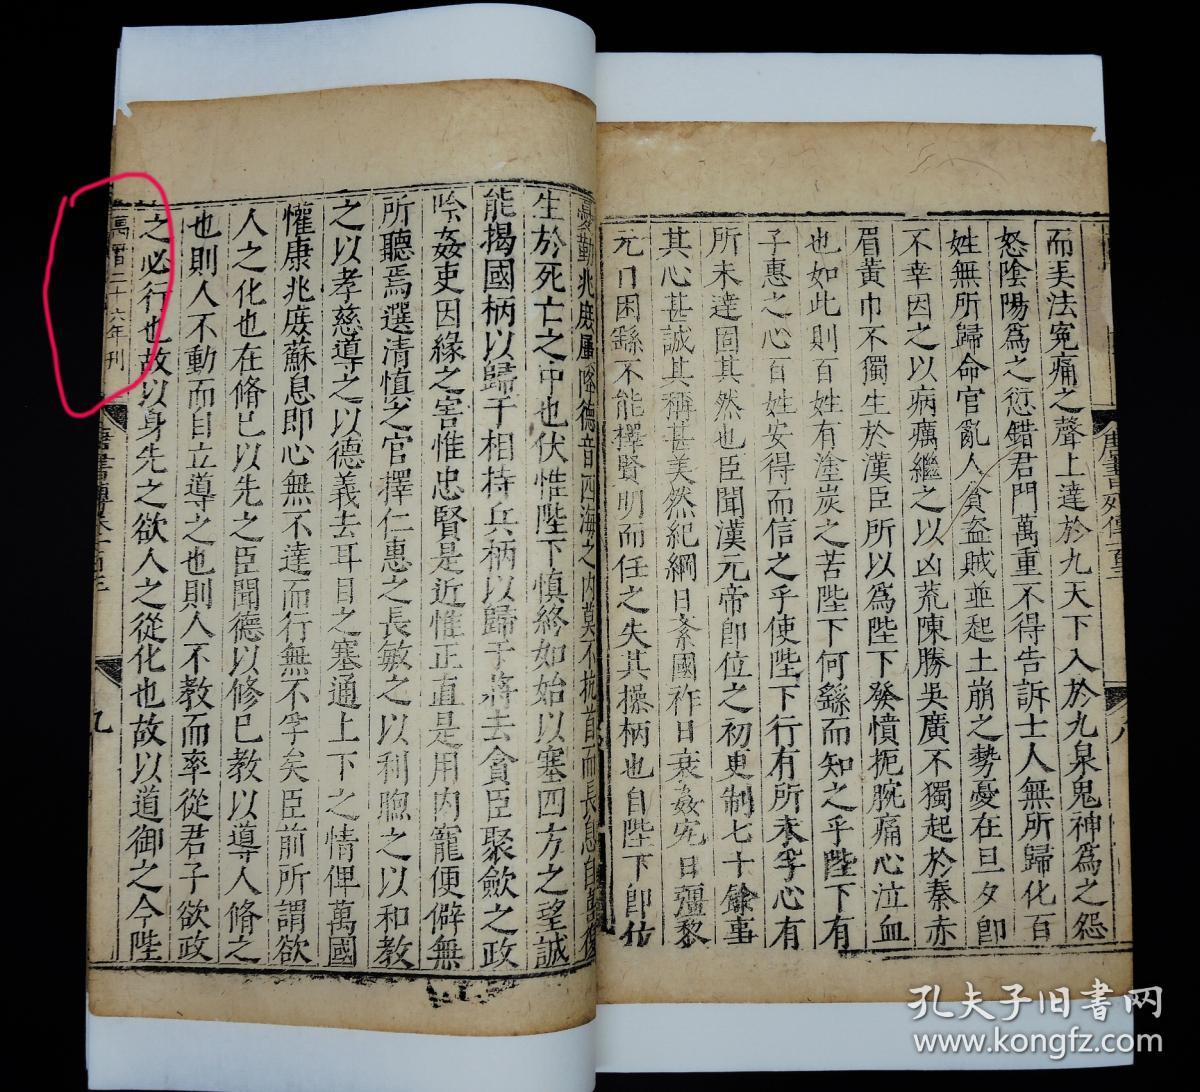 而夷法冤痛之聲上達於九天下入於九泉鬼神爲之怨
怒陰陽爲之愆錯君門萬重不得告訴士人無所歸化百
姓無所歸命官亂人貧盜賊並起土崩之勢憂在旦夕卽
不幸因之以病癘繼之以凶荒陳勝吳廣不獨起於秦赤
眉黃巾不獨生於漢臣所以爲陛下發憤扼腕痛心泣血
也如此則百姓有塗炭之苦陛下何繇而知之乎陛下有
子惠之心百姓安得而信之乎使陛下行有所未孚心有
所未達固其然也臣聞漢元帝卽位之初更制七十餘事
其心甚誠其稱甚美然紀綱日紊國祚日衰姦宄日彊黎
元日困繇不能擇賢明而任之失其操柄也自陛下卽位
唐書列傳
八
憂勤兆庶屢降德音四海之內莫不抗首而長息自
生於死亡之中也伏惟陛下慎終如始以塞四方之望誠
能揭國柄以歸于相持兵柄以歸于將去貪臣聚斂之政
吟姦吏因緣之害惟忠賢是近惟正直是用內寵便僻無
所聽焉選清慎之官擇仁惠之長敏之以利煦之以和教
之以孝慈導之以德義去耳目之塞通上下之情俾萬國
懽康兆庶蘇息卽心無不達而行無不孚矣臣前所謂欲
人之化也在脩巳以先之臣聞德以修巳教以導人脩之
也則人不動而自立導之也則人不教而率從君子欲政
之必行也故以身先之欲人之從化也故以道御之今陛
萬曆二十六年刊
唐書傳卷一百
九
孔夫子旧书网
www.kongfz.com